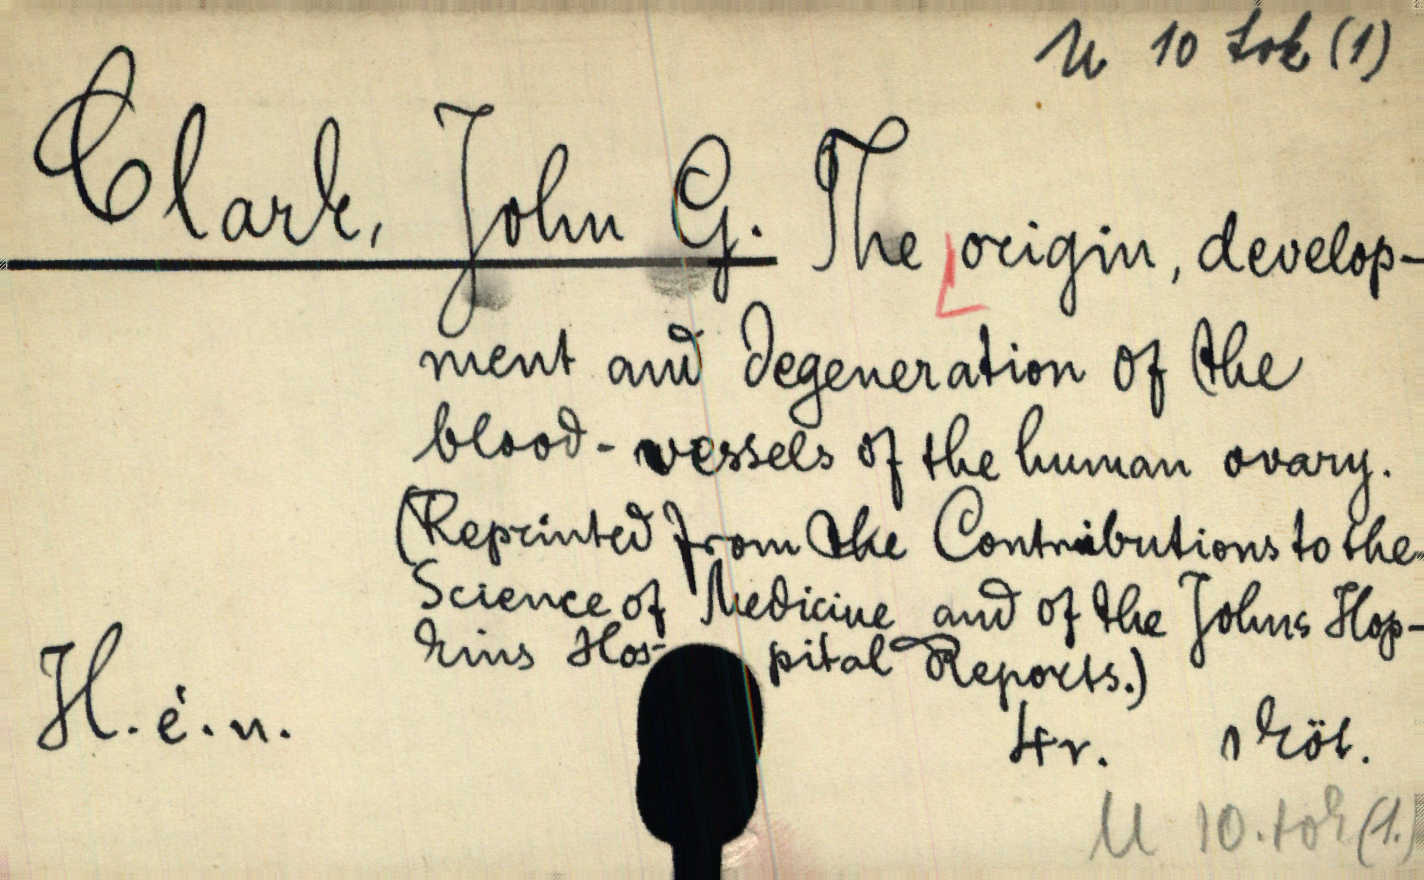 U 10 tok (1)
Clark, John G. The origin, develop-
ment and degeneration of the
blood-vessels of the human ovary.
(Reprinted from the Contributions to the
Science of Medicine and of the Johns Hop-
kins Hos- pital Reports.)
H. é. n.
4r. 1 köt.
U 10. tok (1.)